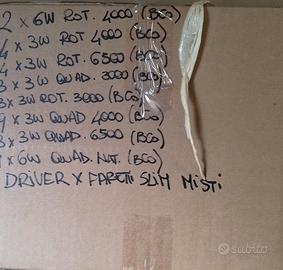 2 x 6W ROT. 4000 (BCO)
4 x 3W ROT 4000 (BCO)
4 x 3W ROT 6500 (BCO)
3 x 3W QUAD. 3000 (BCO)
3 x 3W ROT. 3000 (BCO)
9 x 3W QUAD 4000 (BCO)
3 x 3W QUAD 6500 (BCO)
x 6W QUAD. NAT. (BCO)
DRIVER x FARETTI SLIM MISTI
subito